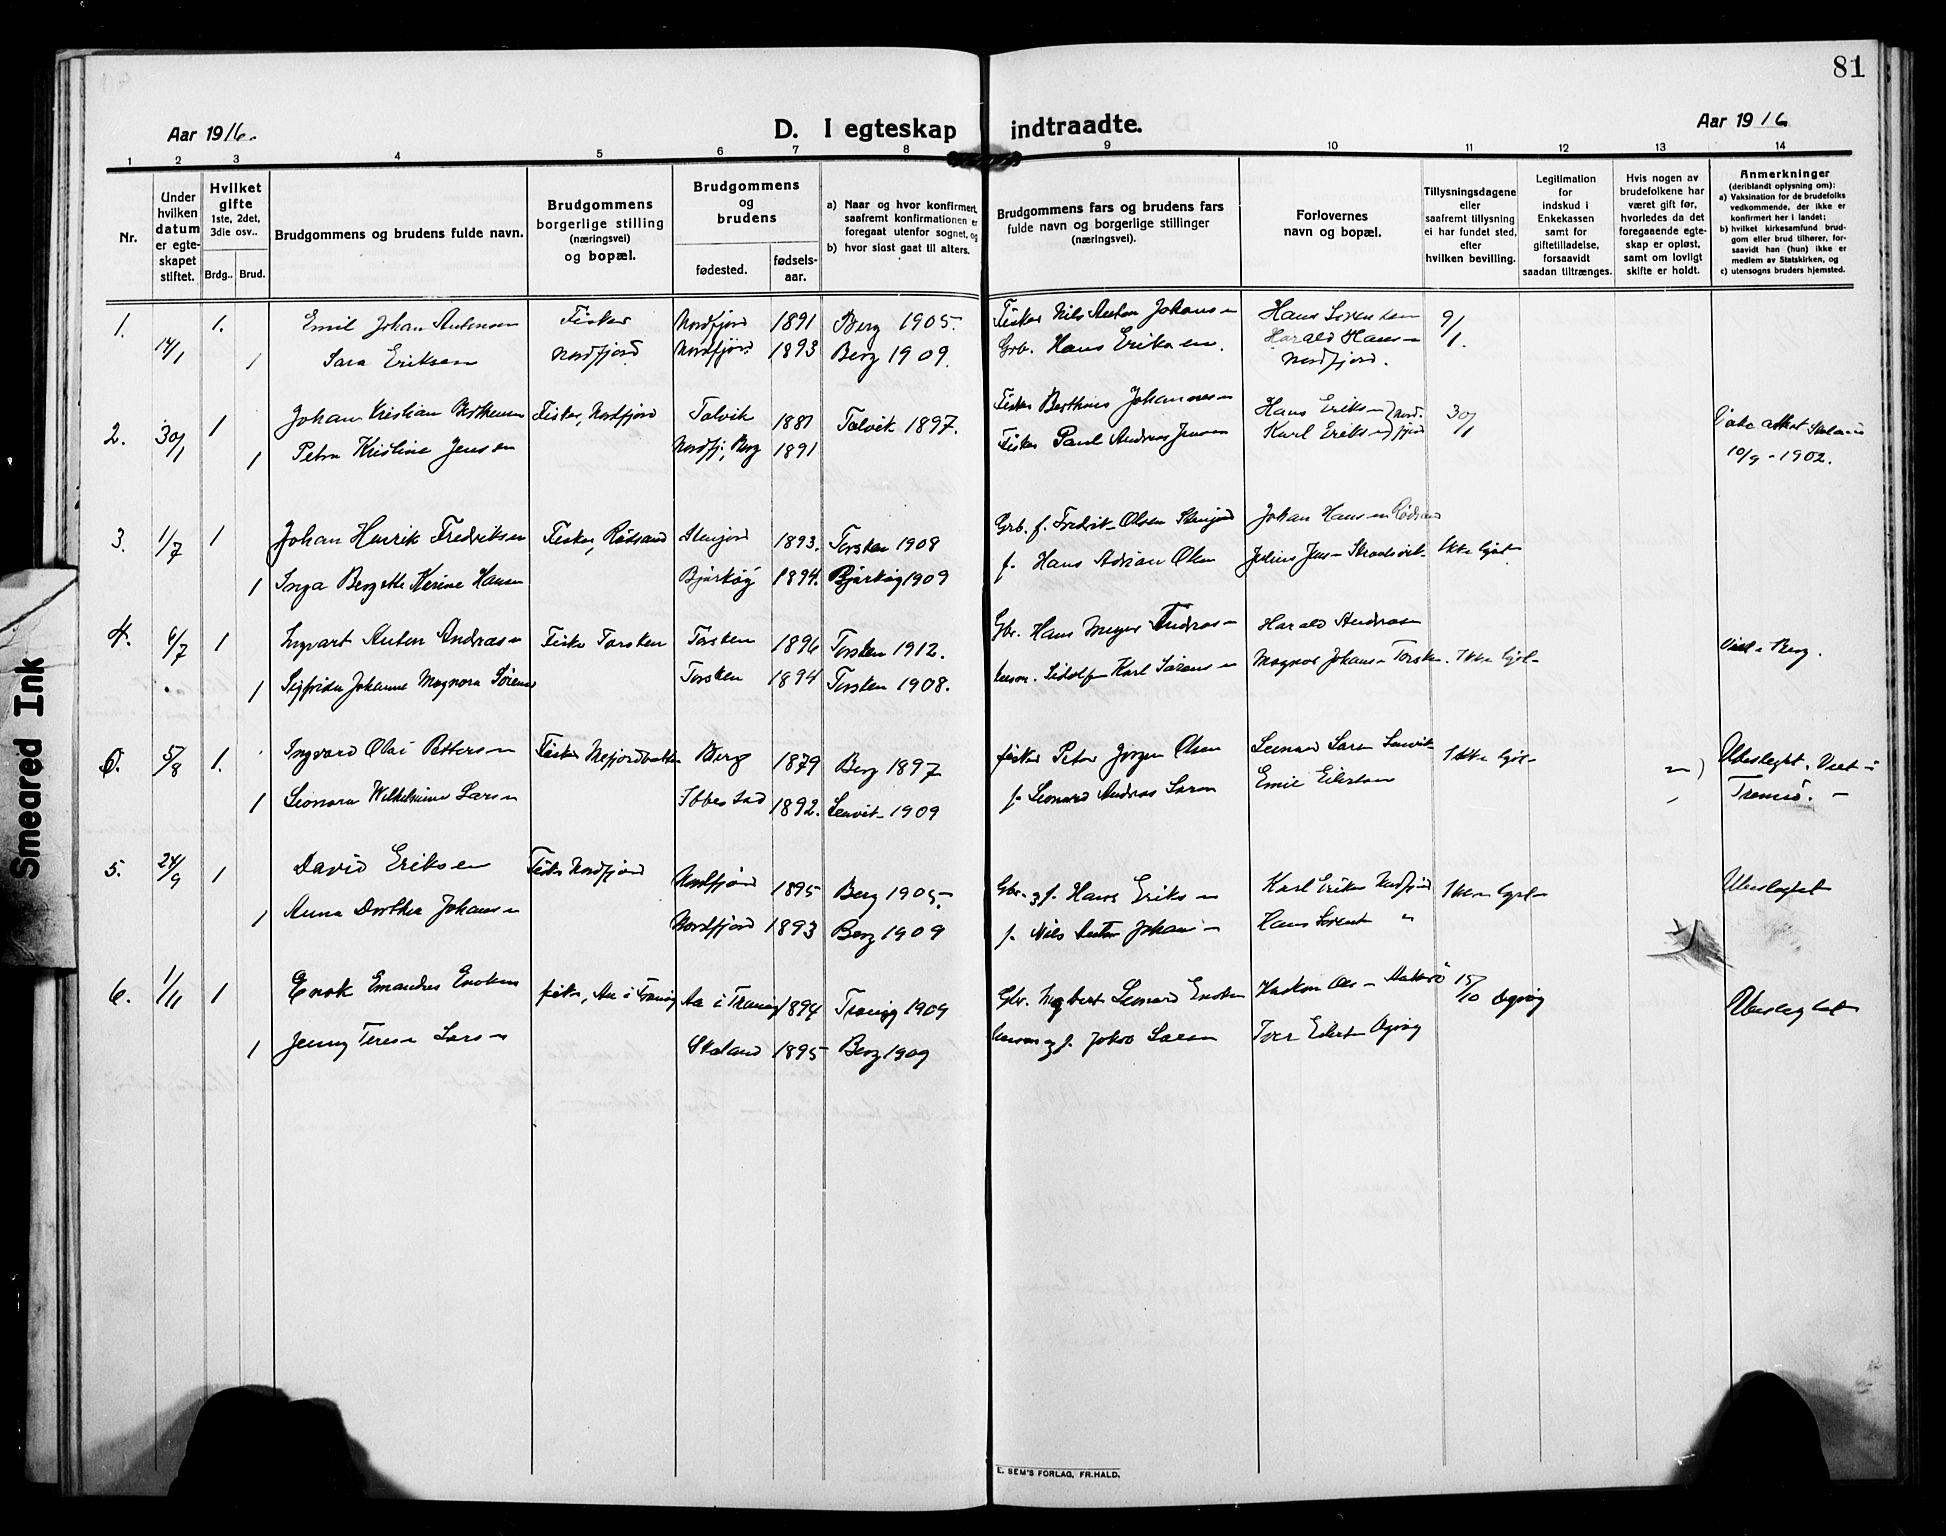 81
Aar 1916.
D. I egteskap indtraadte.
Aar 1916
1 2 3 4 5 6 7 8 9 10 11 12 13 14
Nr.
Under hvilken datum er egteskapet stiftet.
Hvilket gifte 1ste, 2det, 3die osv..
Brdg.. Brud.
Brudgommens og brudens fulde navn.
Brudgommens borgerlige stilling (næringsvei) og bopæl.
Brudgommens og brudens
fødested. fødsels-aar.
a) Naar og hvor konfirmert, saafremt konfirmationen er foregaat utenfor sognet, og
b) hvor sidst gaat til alters.
Brudgommens fars og brudens fars fulde navn og borgerlige stillinger (næringsvei).
Forlovernes navn og bopæl.
Tillysningsdagene eller saafremt tillysning ei har fundet sted, efter hvilken bevilling.
Legitimation for indskud i Enkekassen samt for giftetilladelse, forsaavidt saadan tiltrænges.
Hvis nogen av brudefolkene har været gift før, hvorledes da det foregaaende egteskap er opløst, samt om lovligt skifte er holdt.
Anmerkninger (deriblandt oplysning om):
a) Vaksination for de brudefolks vedkommende, der ikke er konfirmert her i landet;
b) hvilket kirkesamfund brudgom eller brud tilhører, forsaavidt han (hun) ikke er medlem av Statskirken, og
c) utensogns bruders hjemsted.
1. 14/1 1. Emil Johan Antonsen Fisker Nordfjord 1891 Berg 1905. Fisker Nils Anton Johansen Hans Sørensen 9/1.
1 Sara Eriksen Nordfjord Nordfjord 1893 Berg 1909. Grb. Hans Eriksen. Harald Hansen Nordfjord.
2. 30/1 1 Johan Kristian Fisker, Nordfjord Talvik 1881 Talvik 1897. Fisker Johannesen Hans Eriksen 30/1
1 Petra Kristine Jensen Nordfj., Berg 1891 Fisker Paul Andreas Jensen Karl Eriksen Nordfjord 10/9-1902.
3. 1/7 1 Johan Henrik Fredriksen Fisker, Rødsand 1893. Torsken 1908 Grb. f. Fredrik Olsen Johan Hansen
1 Inga Bergette Hansen Bjarkøy 1894. Bjarkøy 1909 f. Hans Adrian Olsen Ikke lyst
4. 6/7 1 Ingvart Anton Andreasen Fisker Torsken Torsken 1896 Torsken 1912. Gbr. Hans Meyer Andreasen Harald Andreasen Viet i Berg.
1 Johanne Magnora Sørensen Torsken 1894 Torsken 1908. Karl Sørensen Magnus Johansen Torsken. Ikke lyst
5/8 1. Ingvard Olai Pettersen Fisker Mefjordbotten Berg 1879 Berg 1897 fisker Peter Jørgen Olsen Ikke lyst Ubeslegtet. Viet i
1 Leonora Wilhelmine Larsen Ibbestad 1892. 1909 f. Leonard Andreas Larsen Emil Tromsø.
5. 24/9 1 David Eriksen Fisker Nordfjord Nordfjord 1895 Berg 1905. Gbr. og f. Hans Eriksen Karl Eriksen Nordfjord Ikke lyst Ubeslegtet
1 Anna Dorthea Johansen Nordfjord 1893 Berg 1909 f. Nils Anton Johansen Hans Sørensen "
6. 1/11 1 Enok Enoksen fisker, Aa i Tranøy Aa i Tranøy 1894 Tranøy 1909 Gbr. Leonard Enoksen 15/10 Ubeslegtet
1 Jenny Larsen Skaland 1895 Berg 1909 og f. Larsen
E. SEM'S FORLAG, FR.HALD.
Smeared Ink